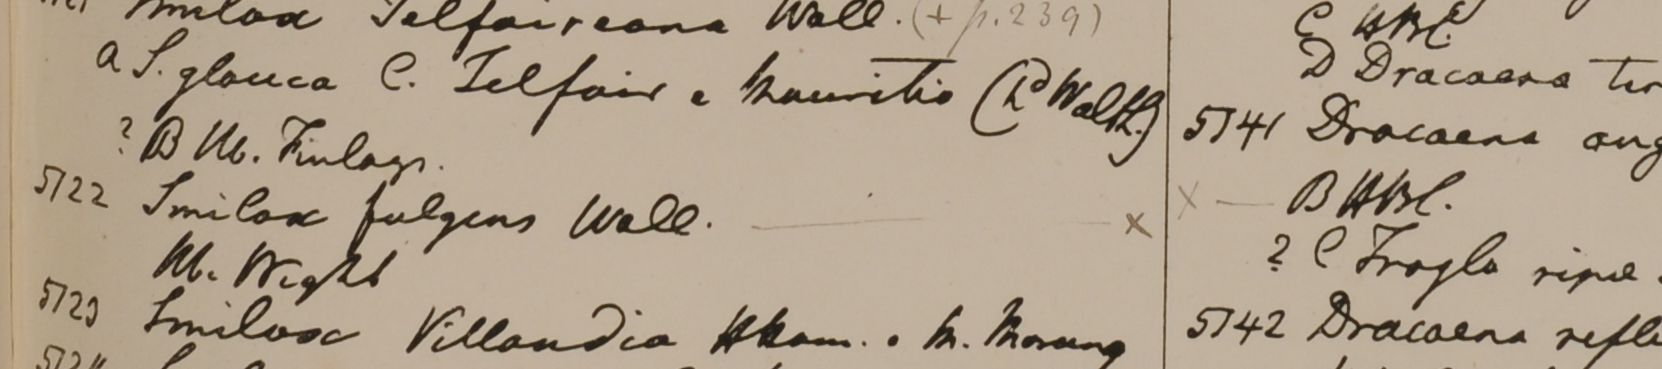 Smilax Telfaireana Wall. (+ p. 239)
a S. glauca C. Telfair e Mauritio (hd Walth.)
? B Hb. Finlays.
5122 Smilax fulgens Wall. — x
Hb. Wight
5123 Smilax Villandia HHam. e M. Morung
C HBC
D Dracaena ter
5141 Dracaena ang
x — B HBC.
? C Trogla ripae
5142 Dracaena refle